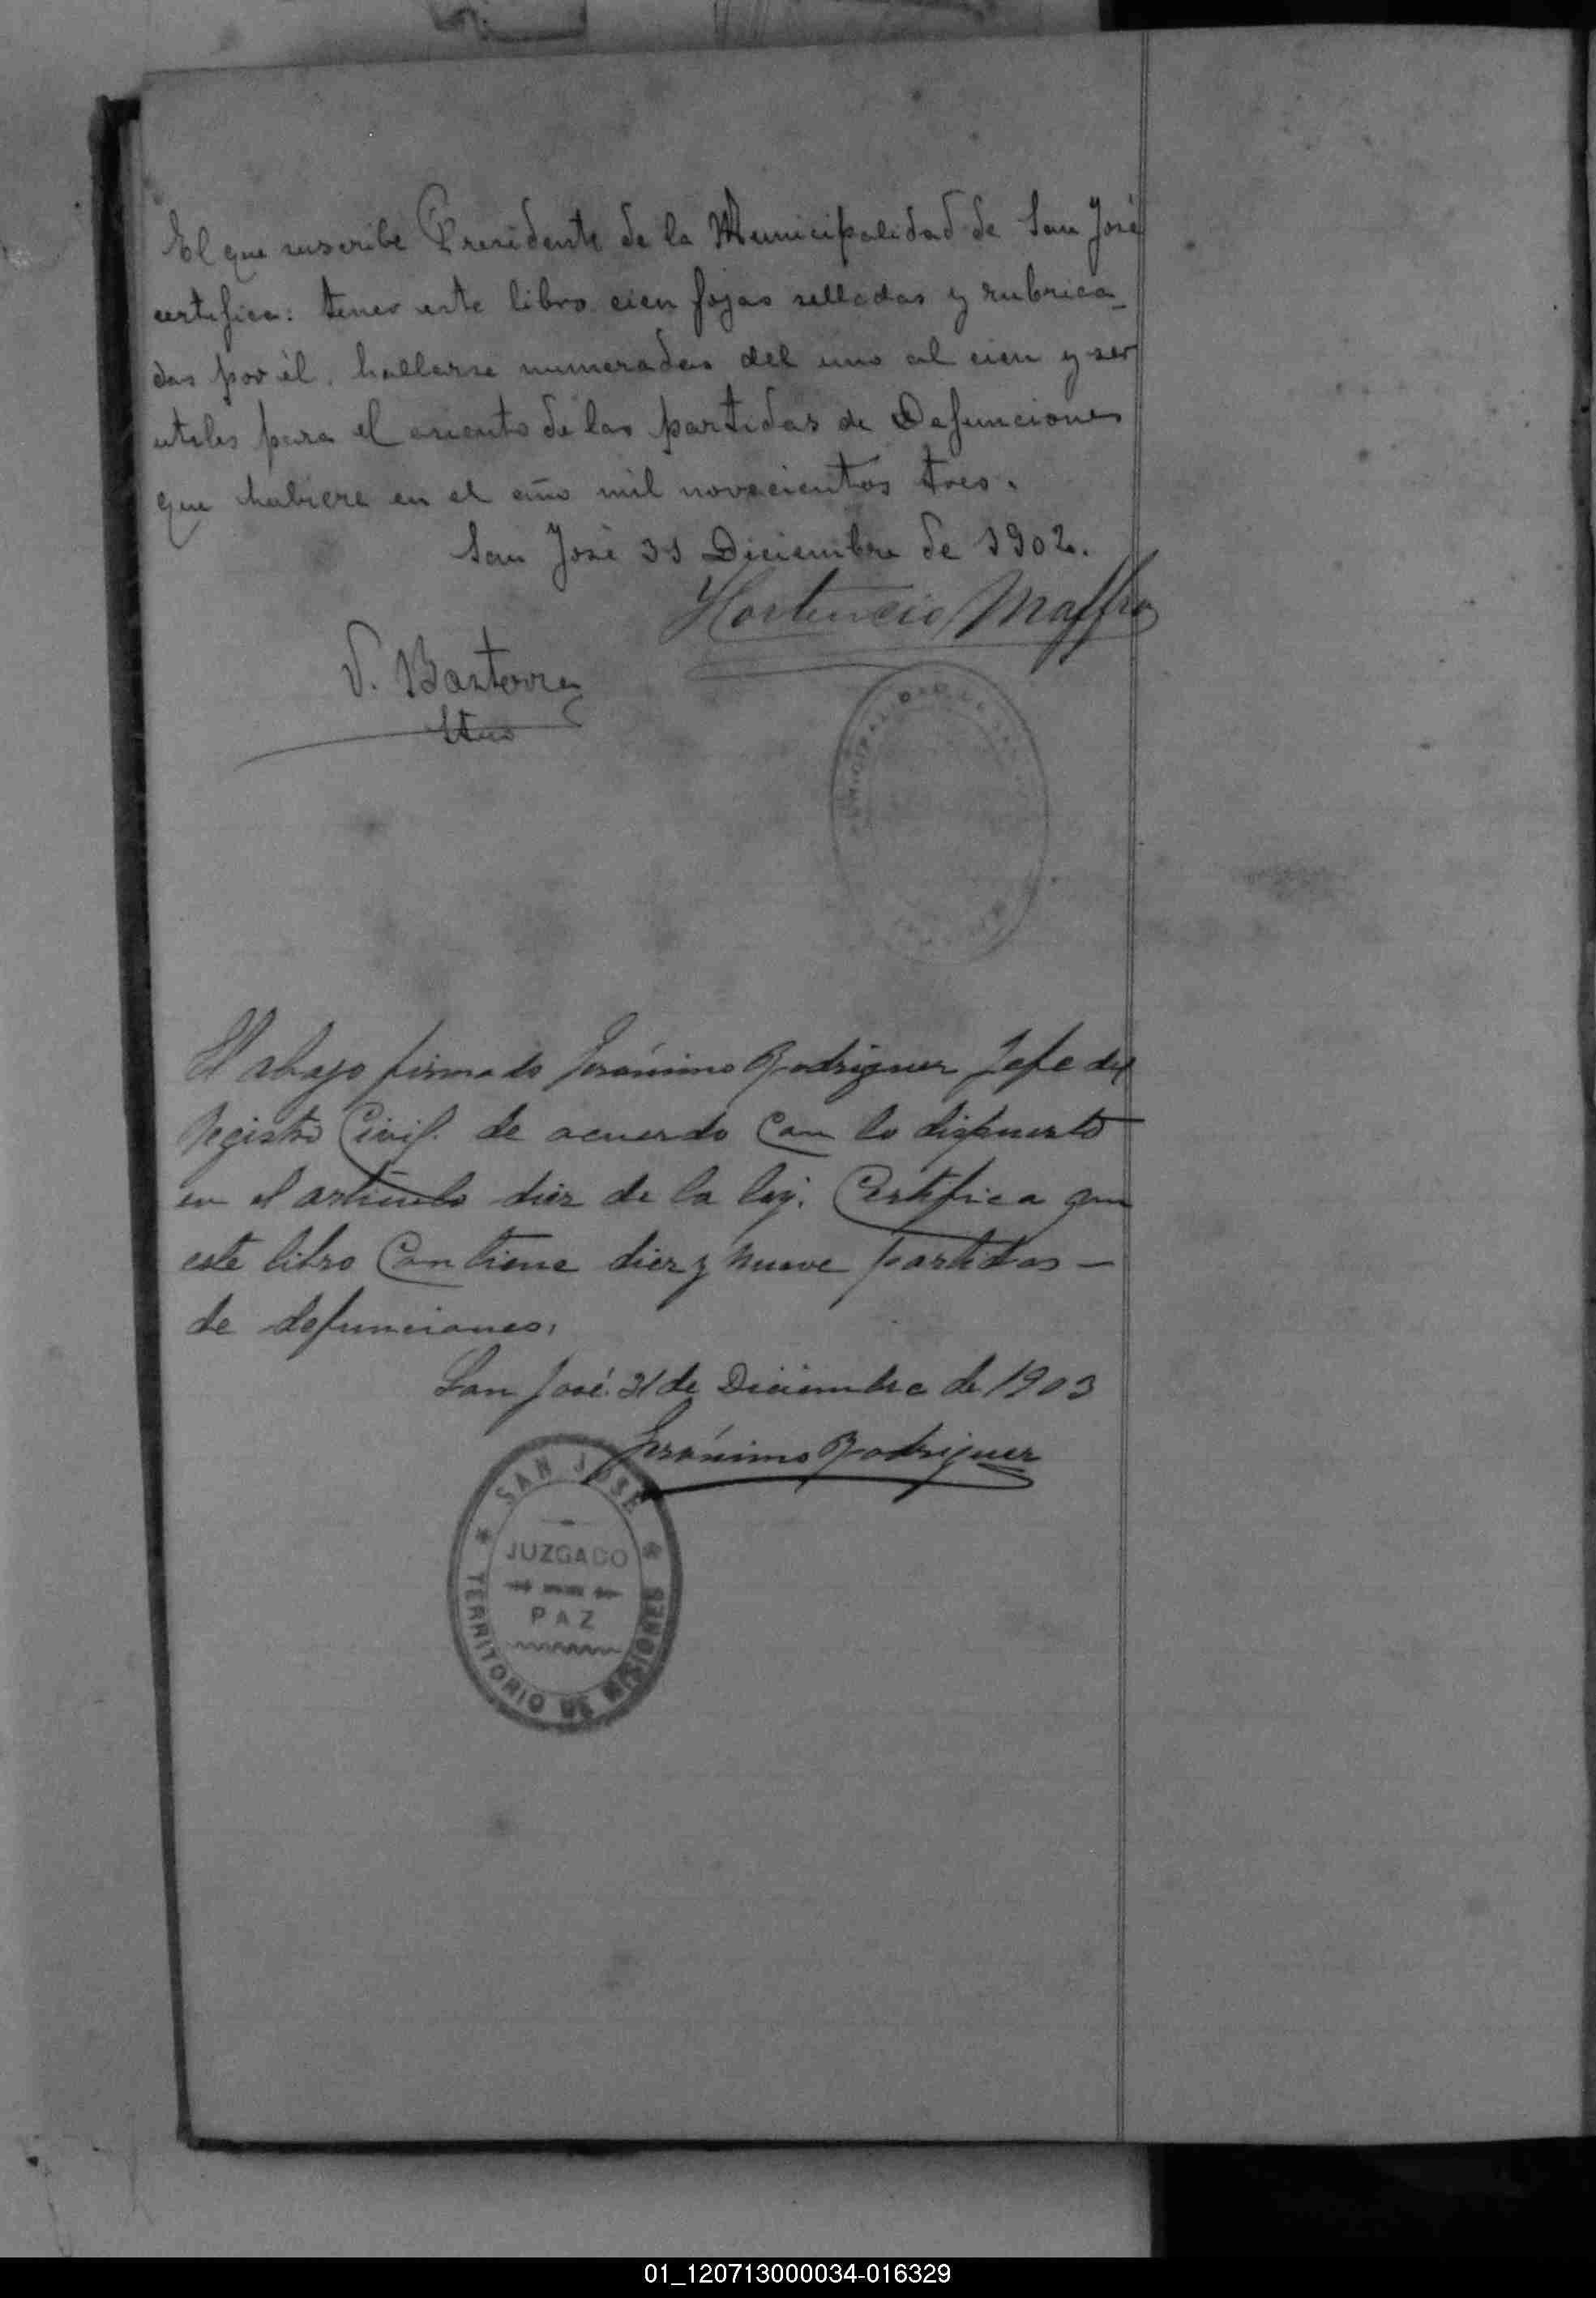 El que suscribe Presidente de la Municipalidad de San José
certifica: tener este libro cien fojas selladas y rubrica_
das por él, hallarse numeradas del uno al cien y ser
utiles para el asiento de las partidas de Defunciones
que hubiere en el año mil novecientos tres.
San José 31 Diciembre de 1902.
Hortencio Maffro
V. Basterra
MUNICIPALIDAD DE SAN
El abajo firmado Gerónimo Rodriguez Jefe del
Registro Civil. de acuerdo Con lo dispuesto
en el articulo diez de la ley. Certifica que
este libro Contiene diez y nueve partidas —
de defunciones,
San José 31 de Diciembre de 1903
Gerónimo Rodriguez
SAN JOSÉ
JUZGADO
PAZ
TERRITORIO DE MISIONES
01_120713000034-016329